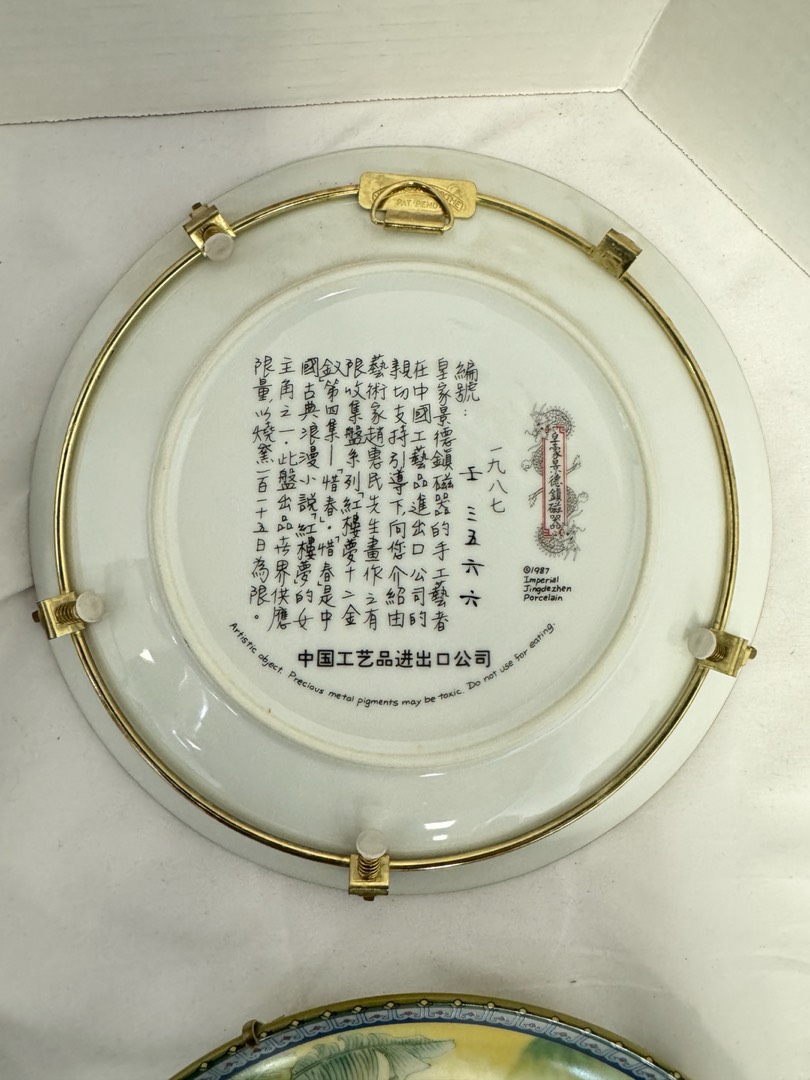 PAT PEND
皇家景德鎮磁器
©1987
Imperial
Jingdezhen
Porcelain
一九八七
壬 三五六六
編號：
皇家景德鎮磁器的手工藝者
在中國工藝品進出口公司的
親切支持引導下,向您介紹由
藝術家趙惠民先生畫作之有
限收集盤系列「紅樓夢十二金
釵」第四集—「惜春」。惜春是中
國古典浪漫小說「紅樓夢」的女
主角之一。此盤出品世界供應
限量,以燒窯一百一十五日為限。
中国工艺品进出口公司
Artistic object. Precious metal pigments may be toxic. Do not use for eating.